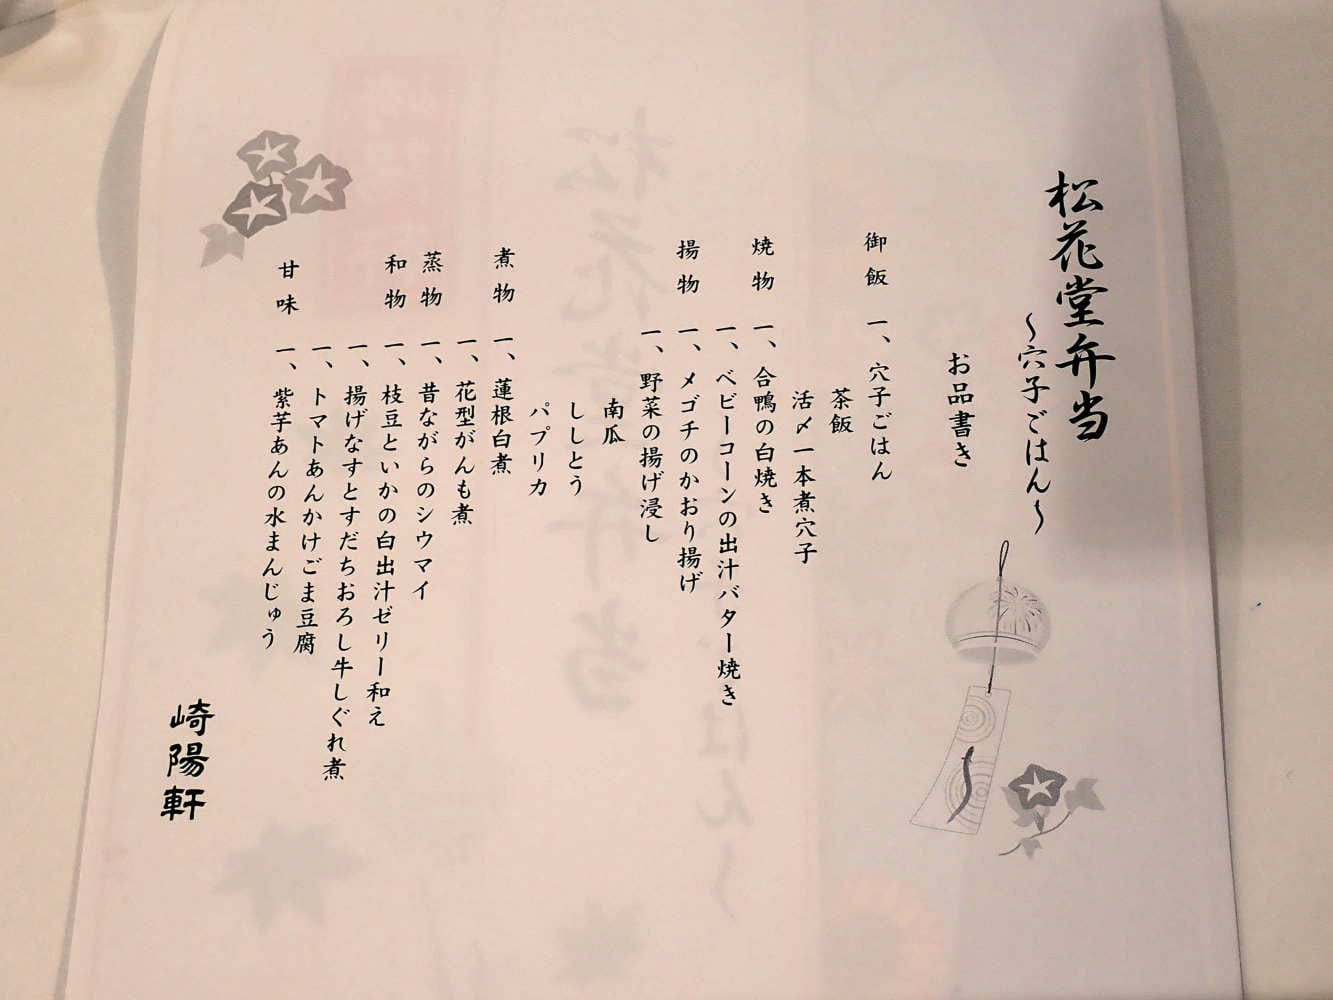 松花堂弁当
〜穴子ごはん〜
お品書き
御飯 一、穴子ごはん
茶飯
活〆一本煮穴子
焼物 一、合鴨の白焼き
一、ベビーコーンの出汁バター焼き
揚物 一、メゴチのかおり揚げ
一、野菜の揚げ浸し
南瓜
ししとう
パプリカ
煮物 一、蓮根白煮
一、花型がんも煮
蒸物 一、昔ながらのシウマイ
和物 一、枝豆といかの白出汁ゼリー和え
一、揚げなすとすだちおろし牛しぐれ煮
一、トマトあんかけごま豆腐
甘味 一、紫芋あんの水まんじゅう
崎陽軒